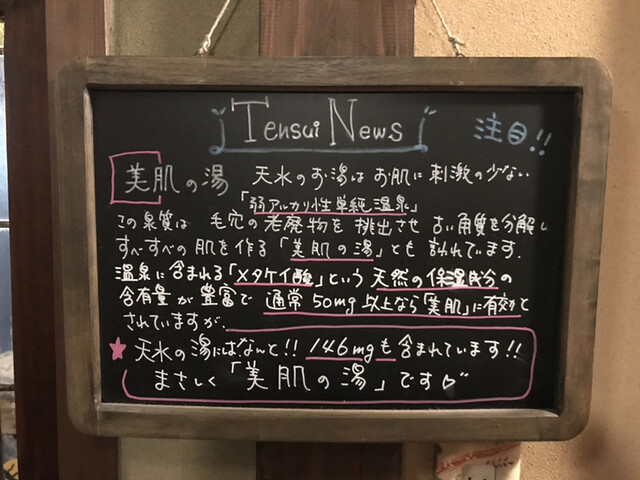 Tensui News
注目!!
美肌の湯 天水のお湯はお肌に刺激の少ない
「弱アルカリ性単純温泉」
この泉質は 毛穴の老廃物を排出させ 古い角質を分解し
すべすべの肌を作る「美肌の湯」とも 言われています.
温泉に含まれる「メタケイ酸」という 天然の保湿成分の
含有量が 豊富で 通常50mg以上なら「美肌」に有効と
されていますが、
★ 天水の湯にはなんと!! 146mgも含まれています!!
まさしく「美肌の湯」です♡